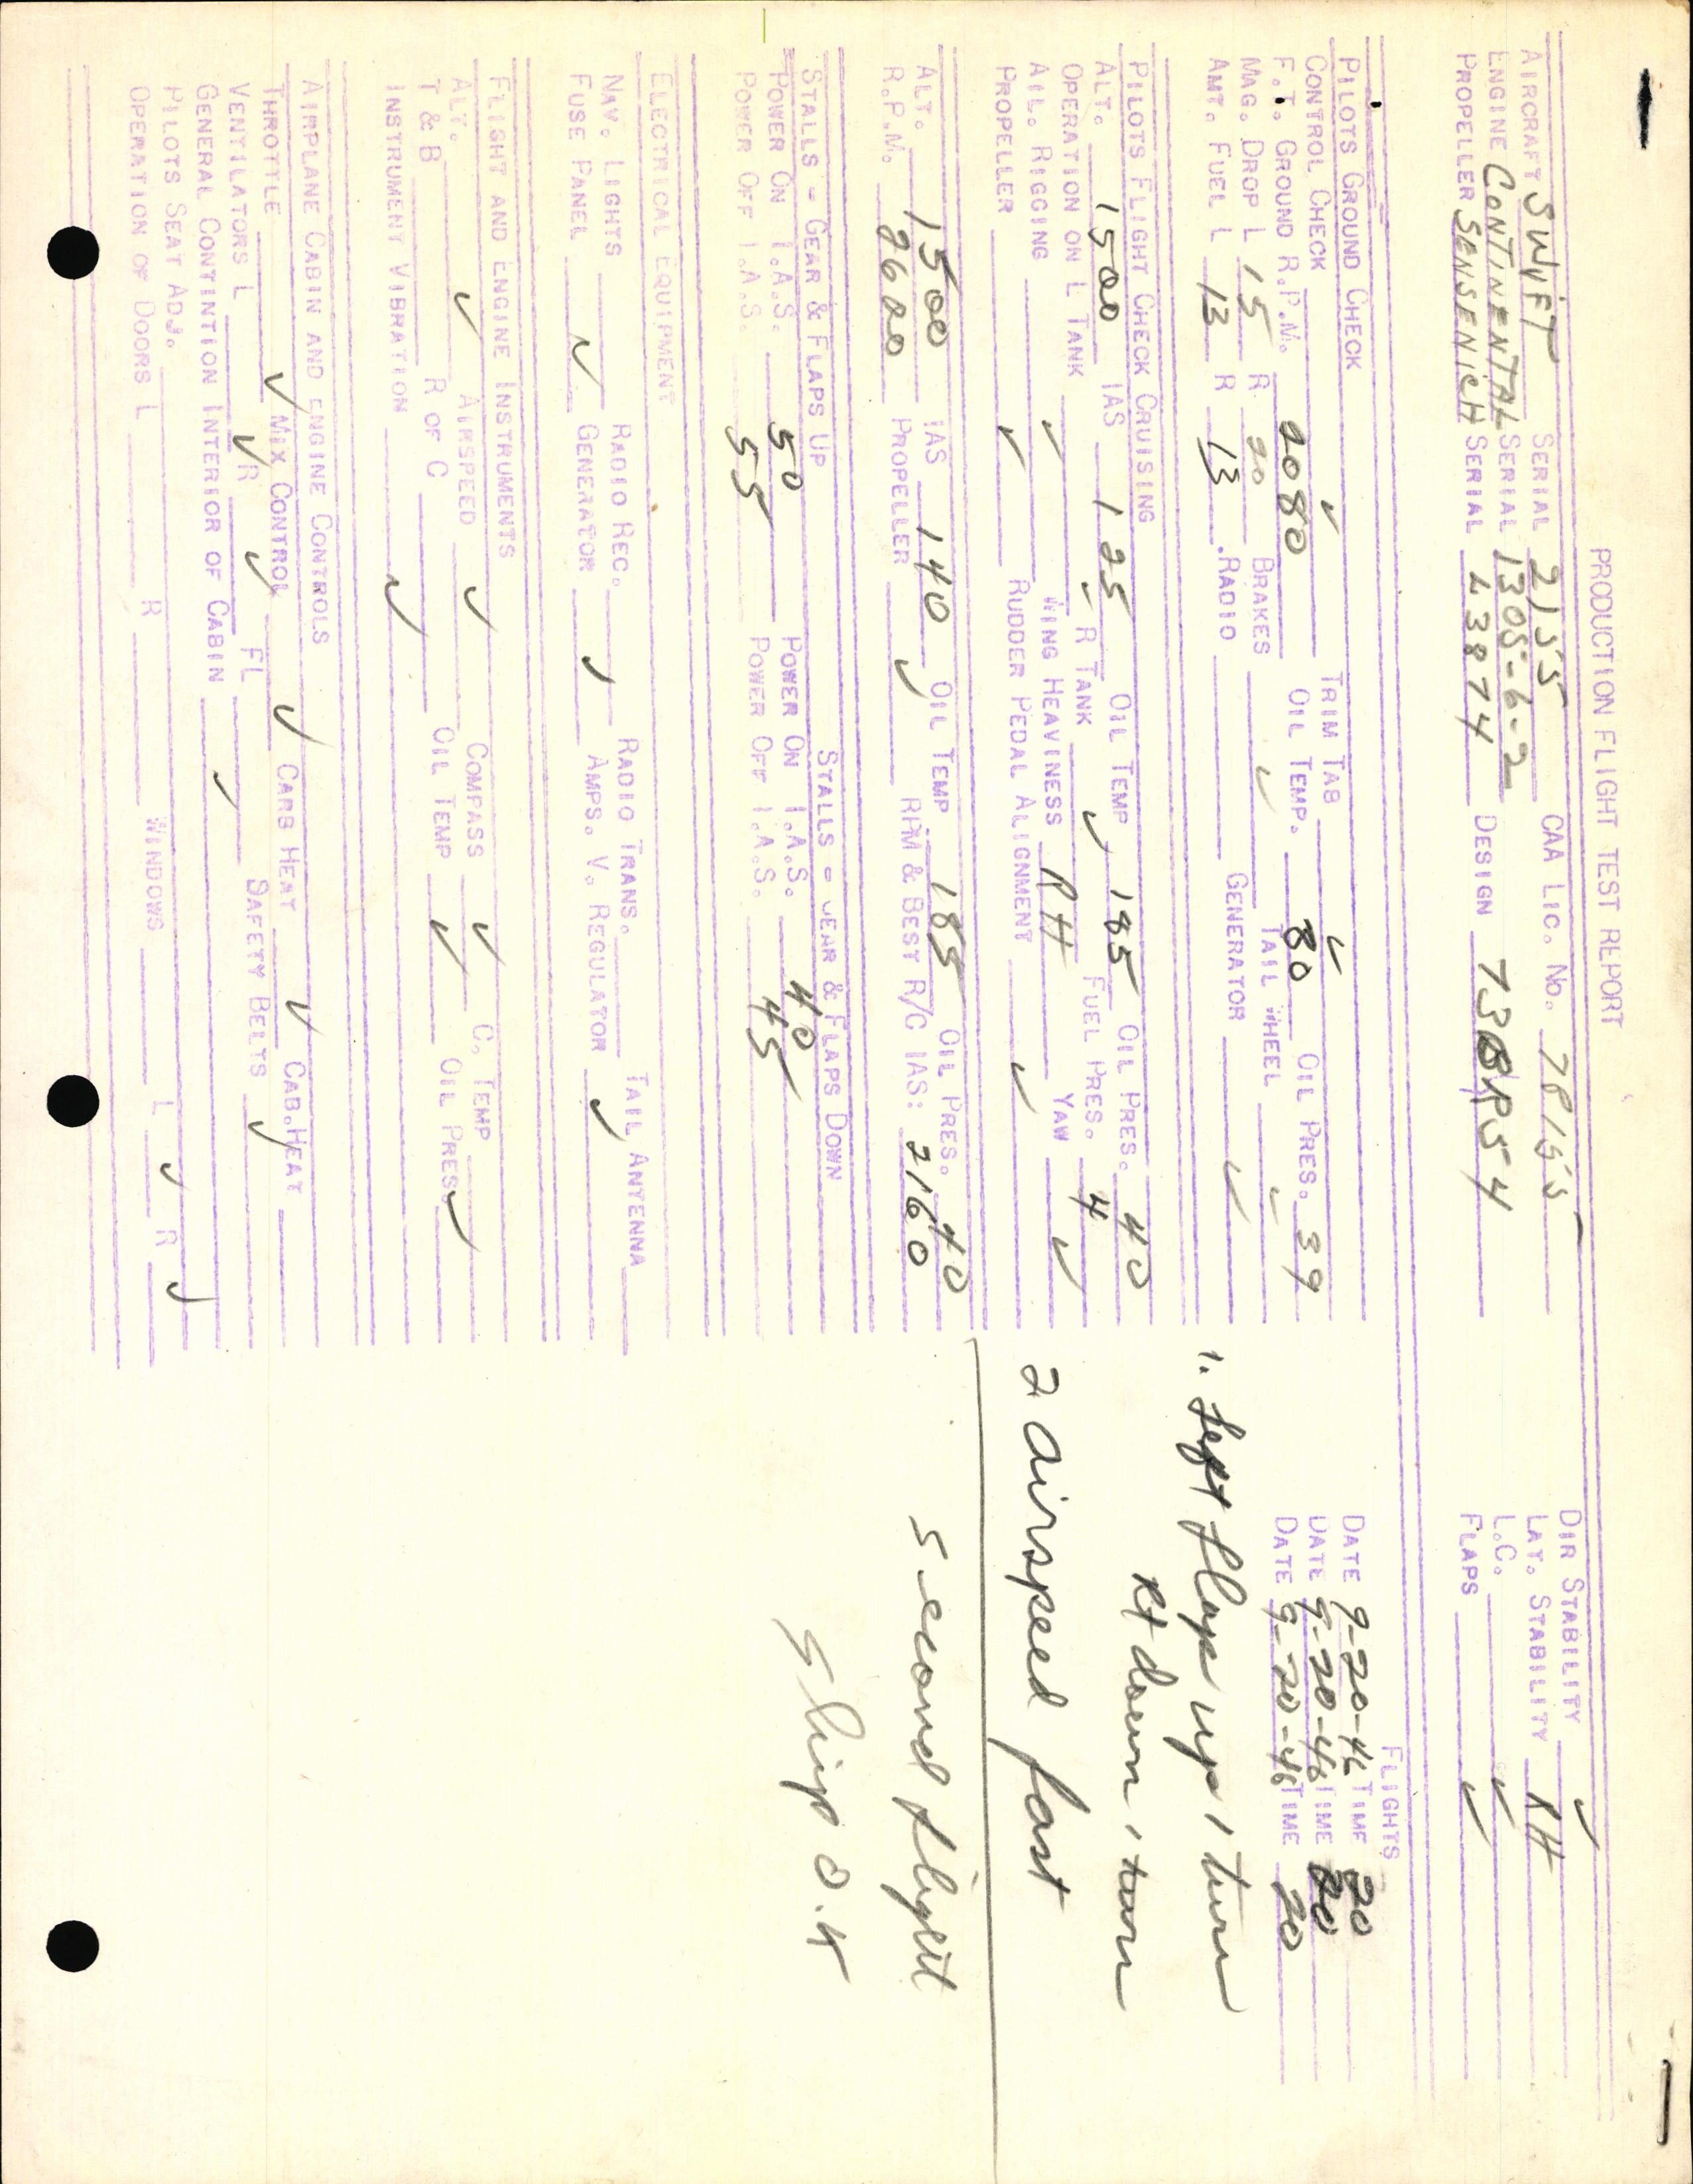 PRODUCTION FLIGHT TEST REPORT
AIRCRAFT SWIFT SERIAL 2155 CAA LIC. NO. 78155 DIR STABILITY ✓
ENGINE CONTINENTAL SERIAL 1305-6-2 LAT. STABILITY RH
PROPELLER SENSENICH SERIAL L3874 DESIGN 73BR54 L.C. ✓
FLAPS ✓
PILOTS GROUND CHECK FLIGHTS
CONTROL CHECK ✓ TRIM TAB ✓ DATE 9-20-46 TIME 20
F.T. GROUND R.P.M. 2080 OIL TEMP. 80 OIL PRES. 39 DATE 9-20-46 TIME 20
MAG. DROP L 15 R 20 BRAKES ✓ TAIL WHEEL ✓ DATE 9-20-46 TIME 20
AMT. FUEL L 13 R 13 RADIO GENERATOR ✓
1. Left flap up 1 turn
Rt down 1 turn
PILOTS FLIGHT CHECK CRUISING
ALT. 1500 IAS 125 OIL TEMP 185 OIL PRES. 40
OPERATION ON L TANK ✓ R TANK ✓ FUEL PRES. 4
AIL. RIGGING ✓ WING HEAVINESS RH YAW ✓
PROPELLER ✓ RUDDER PEDAL ALIGNMENT ✓
2 airspeed fast
ALT. 1500 IAS 140 OIL TEMP 185 OIL PRES. 40
R.P.M. 2600 PROPELLER ✓ RPM & BEST R/C IAS: 2160
second flight
STALLS - GEAR & FLAPS UP STALLS - GEAR & FLAPS DOWN
POWER ON I.A.S. 50 POWER ON I.A.S. 40
POWER OFF I.A.S. 55 POWER OFF I.A.S. 45
Ship O.K
ELECTRICAL EQUIPMENT
NAV. LIGHTS RADIO REC. RADIO TRANS. TAIL ANTENNA
FUSE PANEL ✓ GENERATOR ✓ AMPS. V. REGULATOR ✓
FLIGHT AND ENGINE INSTRUMENTS
ALT. ✓ AIRSPEED ✓ COMPASS ✓ C. TEMP
T & B R OF C OIL TEMP ✓ OIL PRES. ✓
INSTRUMENT VIBRATION ✓
AIRPLANE CABIN AND ENGINE CONTROLS
THROTTLE ✓ MIX CONTROL ✓ CARB HEAT ✓ CAB. HEAT
VENTILATORS L ✓ R ✓ FL SAFETY BELTS ✓
GENERAL CONTINTION INTERIOR OF CABIN ✓
PILOTS SEAT ADJ.
OPERATION OF DOORS L R WINDOWS L ✓ R ✓